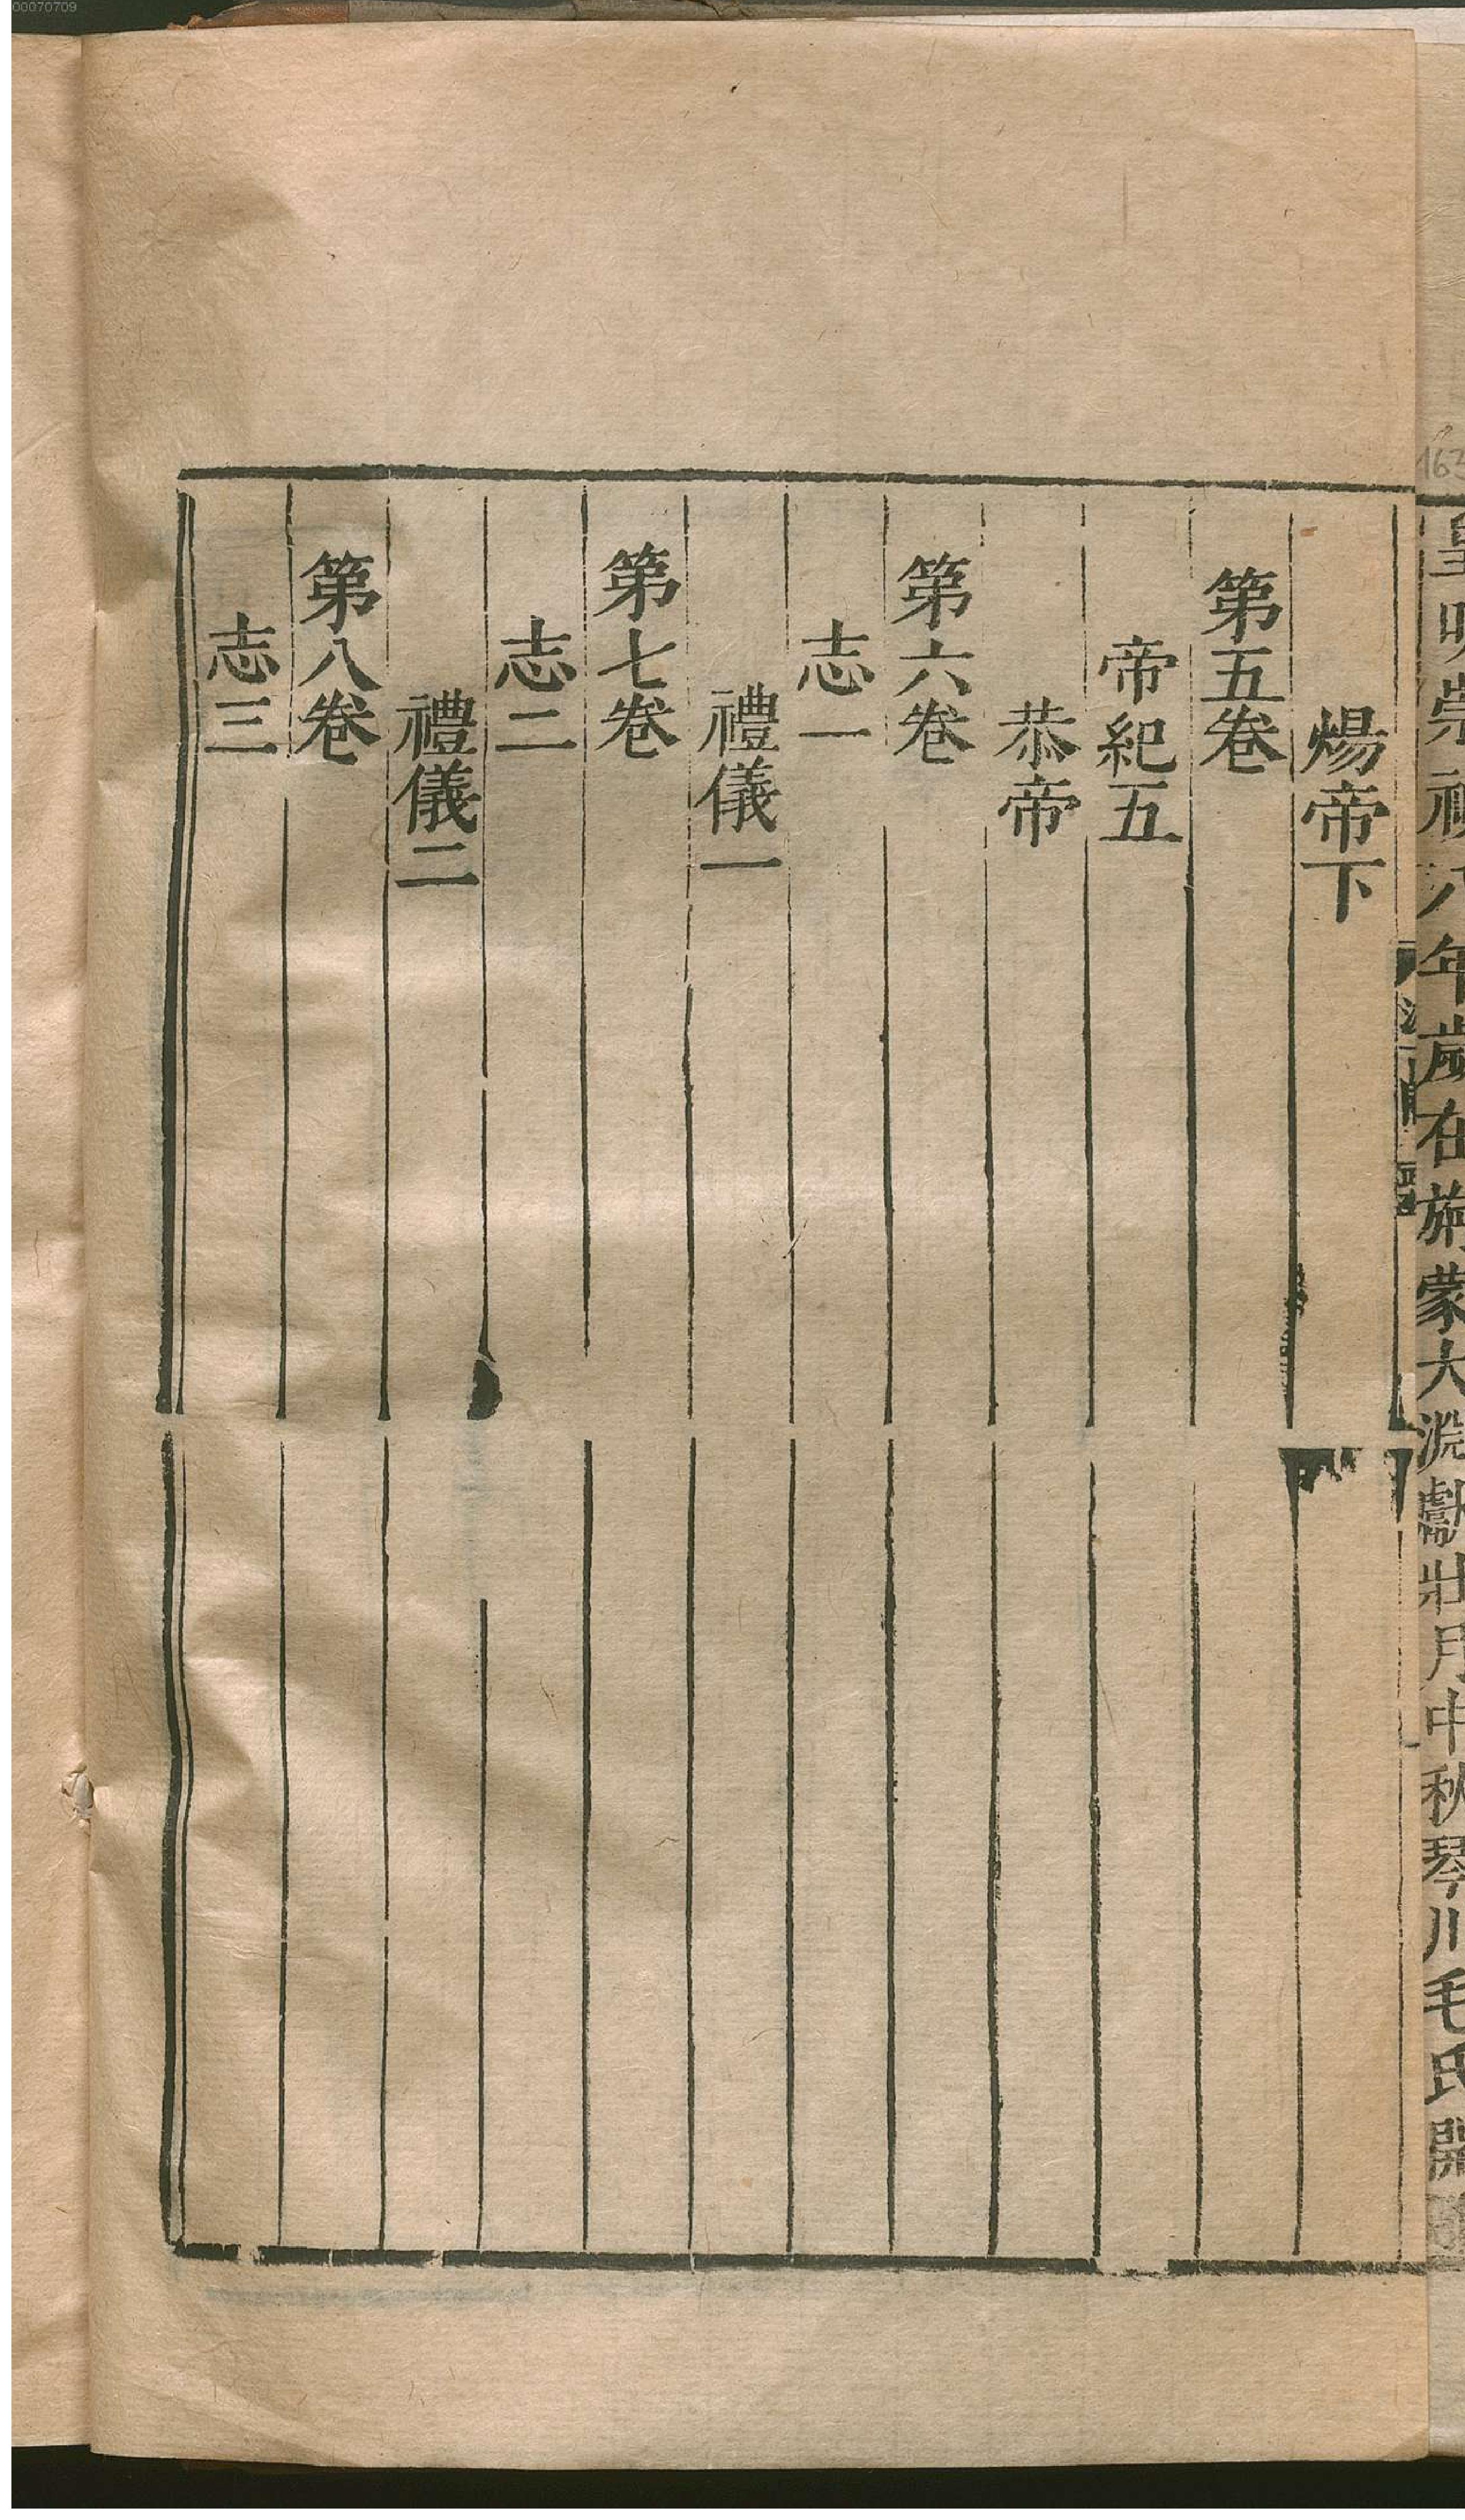 皇明崇禎八年歲在旃蒙大淵獻壯月中秋琴川毛氏開雕
煬帝下
第五卷
帝紀五
恭帝
第六卷
志一
禮儀一
第七卷
志二
禮儀二
第八卷
志三
00070709